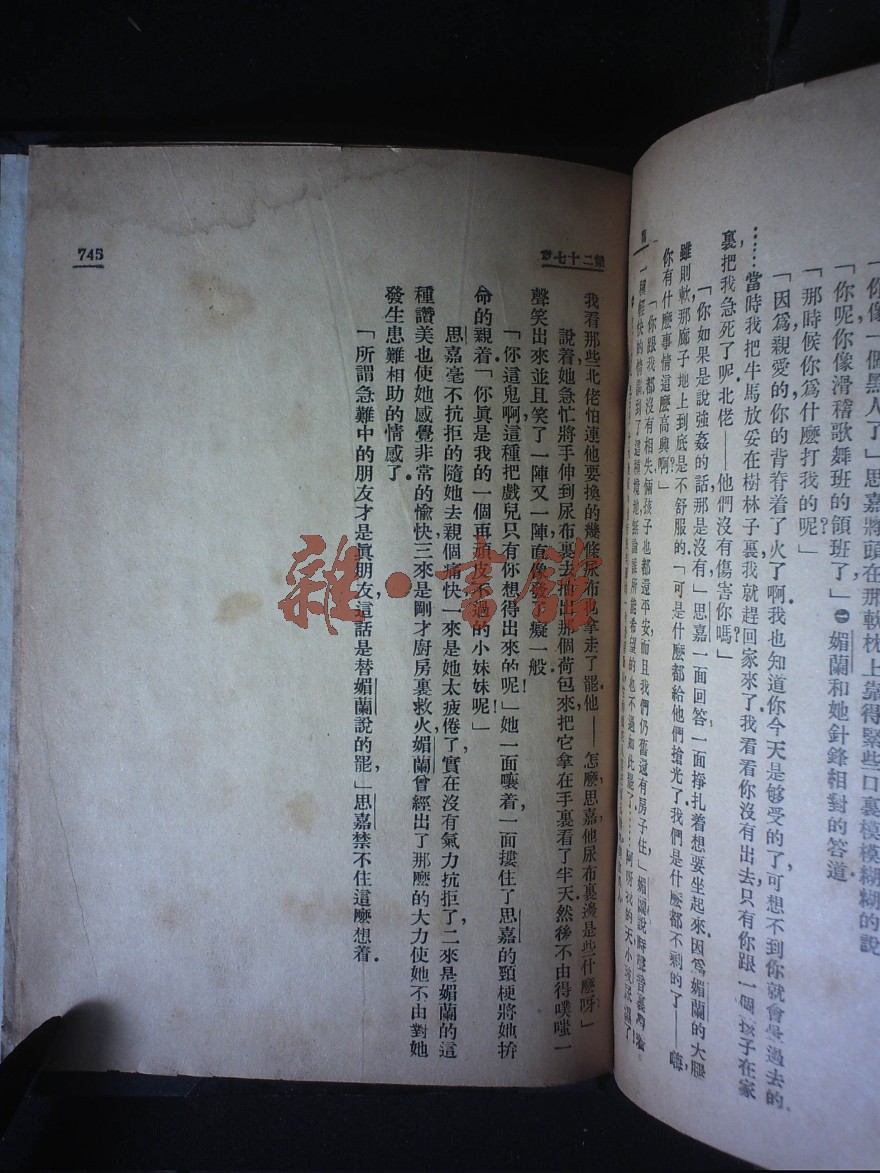 「你像一個黑人了」思嘉將頭在那軟枕上靠得緊些口裏模模糊糊的說
「你呢你像滑稽歌舞班的領班了」媚蘭和她針鋒相對的答道
「那時候你爲什麽打我的呢」
「因爲親愛的你的背脊着了火了啊我也知道你今天是够受的了可想不到你就會暈過去的
……當時我把牛馬放妥在樹林子裏我就趕回家來了我看看你沒有出去只有你跟一個孩子在家
裏把我急死了呢北佬——他們沒有傷害你嗎」
「你如果是說強姦的話那是沒有」思嘉一面回答一面掙扎着想要坐起來因爲媚蘭的大腿
雖則軟那廊子地上到底是不舒服的「可是什麽都給他們搶光了我們是什麽都不剩的了——嗨
你有什麽事情這麽高興啊」
「你跟我都沒有相失倆孩子也都還平安而且我們仍舊還有房子住」媚蘭說時聲音裏
第二十七章
我看那些北佬怕連他要換的幾條尿布也拿走了罷他——怎麽思嘉他尿布裏邊是些什麽呀」
說着她急忙將手伸到尿布裏去抽出那個荷包來把它拿在手裏看了半天然後不由得噗嗤一
聲笑出來並且笑了一陣又一陣直像發了癡一般
「你這鬼啊這種把戲兒只有你想得出來的呢！」她一面嚷着一面摟住了思嘉的頸梗將她拚
命的親着「你眞是我的一個再頑皮不過的小妹妹呢！」
思嘉毫不抗拒的隨她去親個痛快一來是她太疲倦了實在沒有氣力抗拒了二來是媚蘭的這
種讚美也使她感覺非常的愉快三來是剛才厨房裏救火媚蘭曾經出了那麽的大力使她不由對她
發生患難相助的情感了
「所謂急難中的朋友才是眞朋友這話是替媚蘭說的罷」思嘉禁不住這麽想着
745
雜·書館